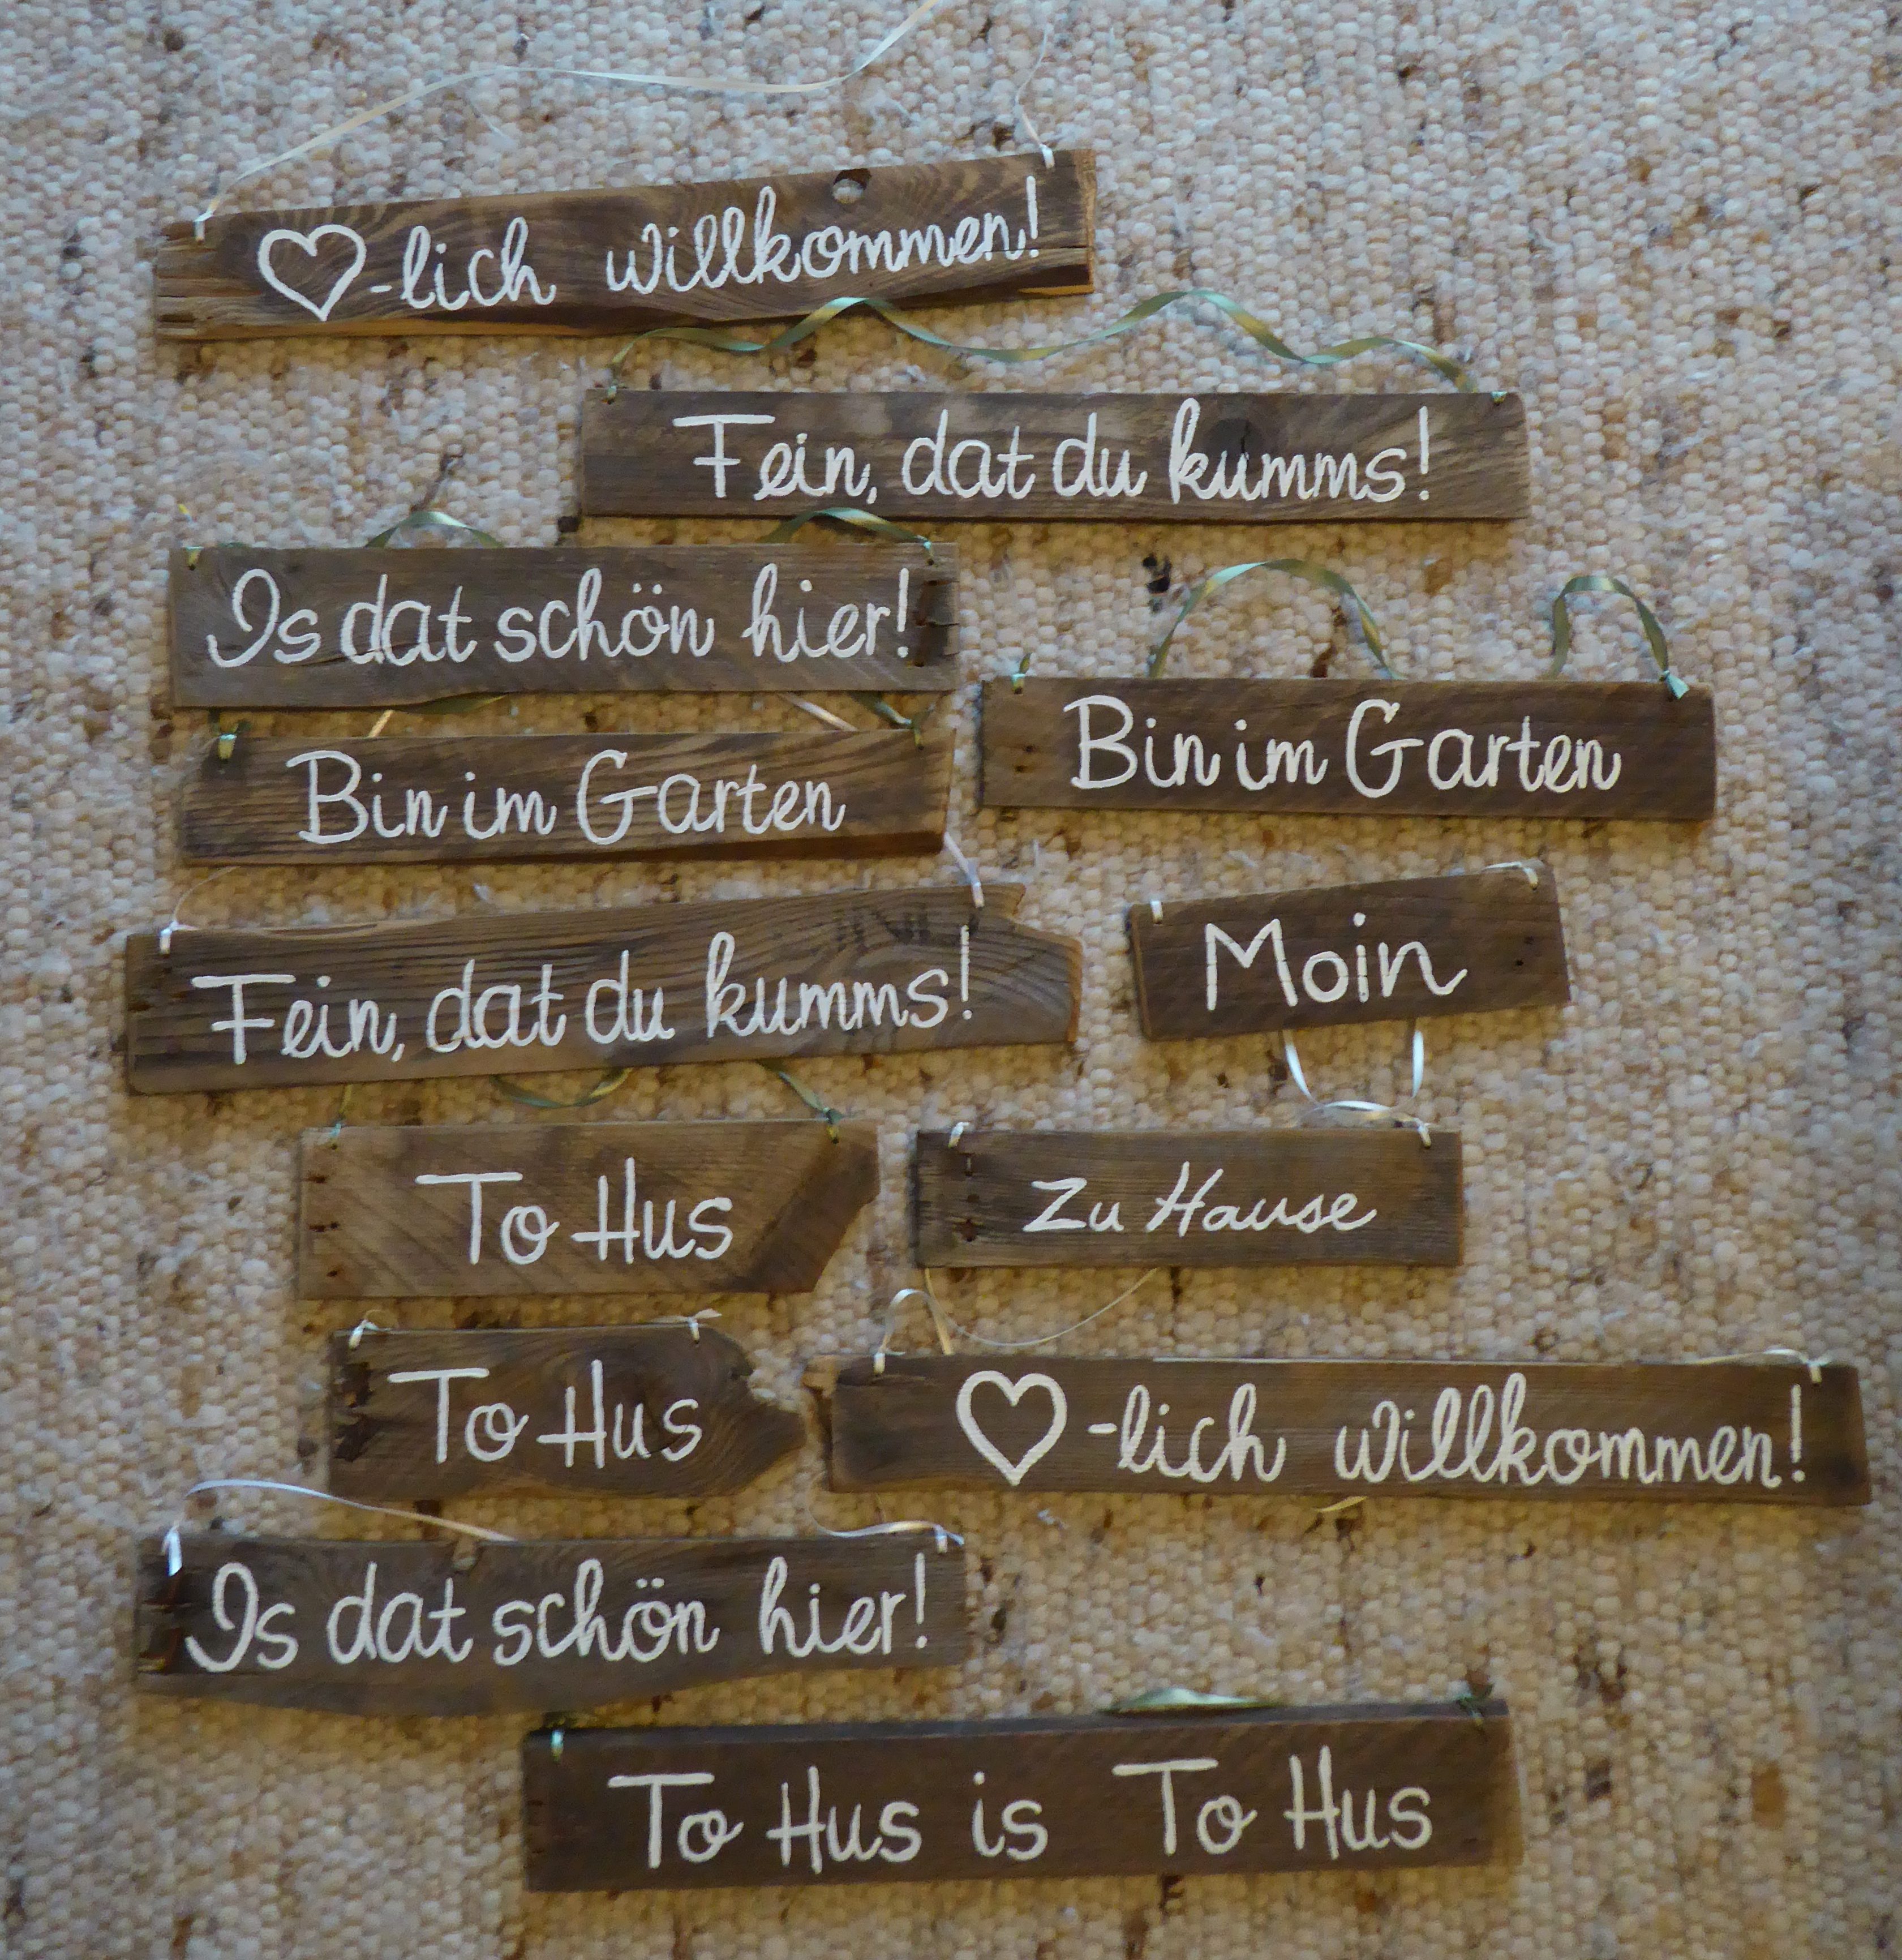 ♡-lich willkommen!
Fein, dat du kumms!
Is dat schön hier!
Bin im Garten
Bin im Garten
Fein, dat du kumms!
Moin
To Hus
Zu Hause
To Hus
♡-lich willkommen!
Is dat schön hier!
To Hus is To Hus